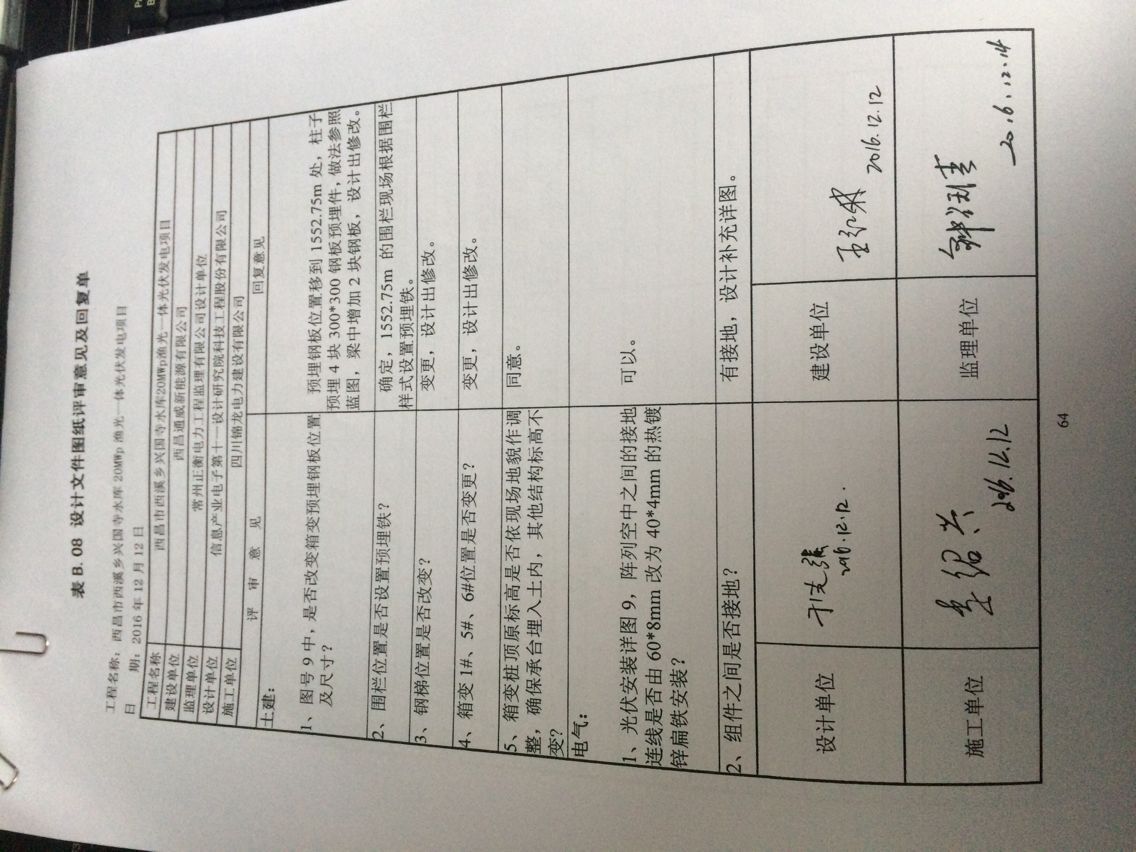 表 B.08 设计文件图纸评审意见及回复单
工程名称：西昌市西溪乡兴国寺水库 20MWp 渔光一体光伏发电项目
日 期：2016 年 12 月 12 日
工程名称 西昌市西溪乡兴国寺水库20MWp渔光一体光伏发电项目
建设单位 西昌通威新能源有限公司
监理单位 常州正衡电力工程监理有限公司设计单位
设计单位 信息产业电子第十一设计研究院科技工程股份有限公司
施工单位 四川锦龙电力建设有限公司
评 审 意 见 回复意见
土建：
1、图号 9 中，是否改变箱变预埋钢板位置
及尺寸？
预埋钢板位置移到 1552.75m 处，柱子
预埋 4 块 300*300 钢板预埋件，做法参照
蓝图，梁中增加 2 块钢板，设计出修改。
2、围栏位置是否设置预埋铁？
确定，1552.75m 的围栏现场根据围栏
样式设置预埋铁。
3、钢梯位置是否改变？
变更，设计出修改。
4、箱变 1#、5#、6#位置是否变更？
变更，设计出修改。
5、箱变桩顶原标高是否依现场地貌作调
整，确保承台埋入土内，其他结构标高不
变？
同意。
电气：
1、光伏安装详图 9，阵列空中之间的接地
连线是否由 60*8mm 改为 40*4mm 的热镀
锌扁铁安装？
可以。
2、组件之间是否接地？
有接地，设计补充详图。
设计单位
2016.12.12.
建设单位
2016.12.12
施工单位
2016.12.12
监理单位
2016.12.14
64